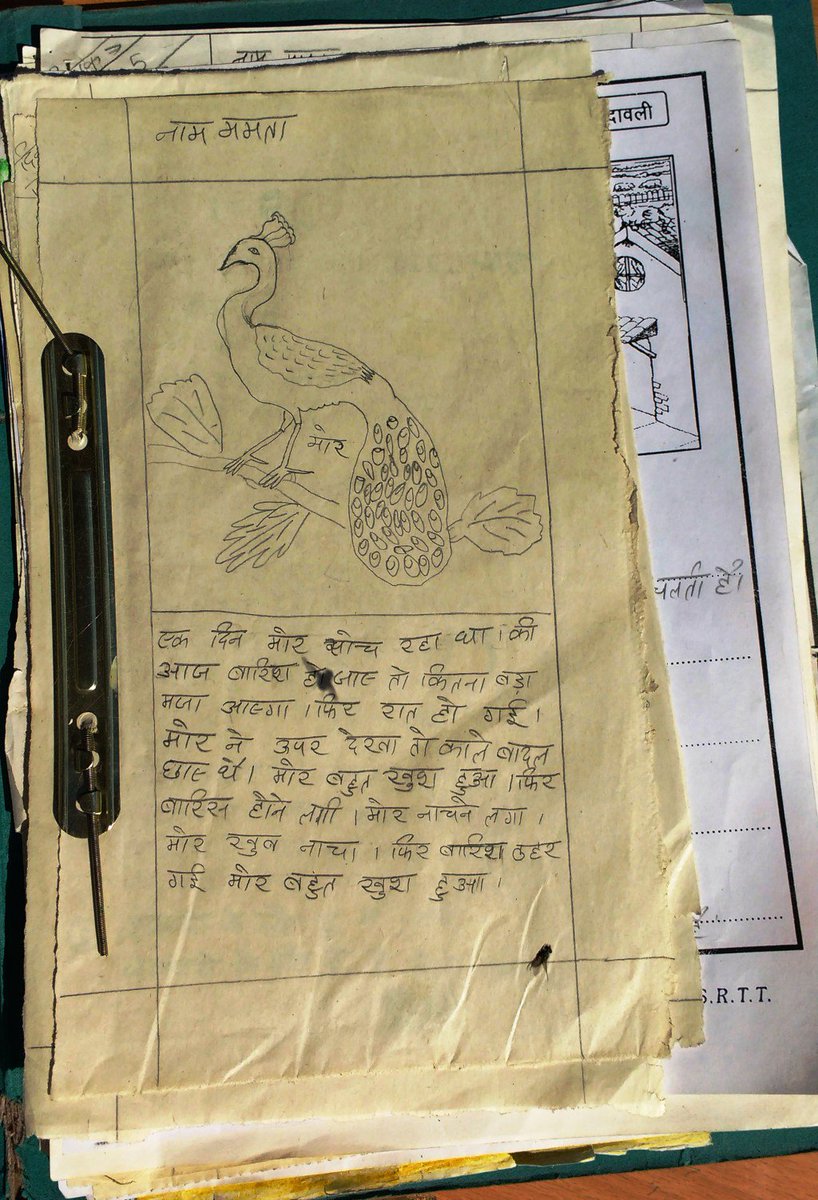 नाम ममता
मोर
एक दिन मोर सोच रहा था। की
आज बारिश हो जाए तो कितना बड़ा
मजा आएगा। फिर रात हो गई।
मोर ने उपर देखा तो काले बादल
छाए थे। मोर बहुत खुश हुआ। फिर
बारिस होने लगी। मोर नाचने लगा।
मोर खुब नाचा। फिर बारिश ठहर
गई मोर बहुत खुश हुआ।
दावली
चलती है।
S.R.T.T.